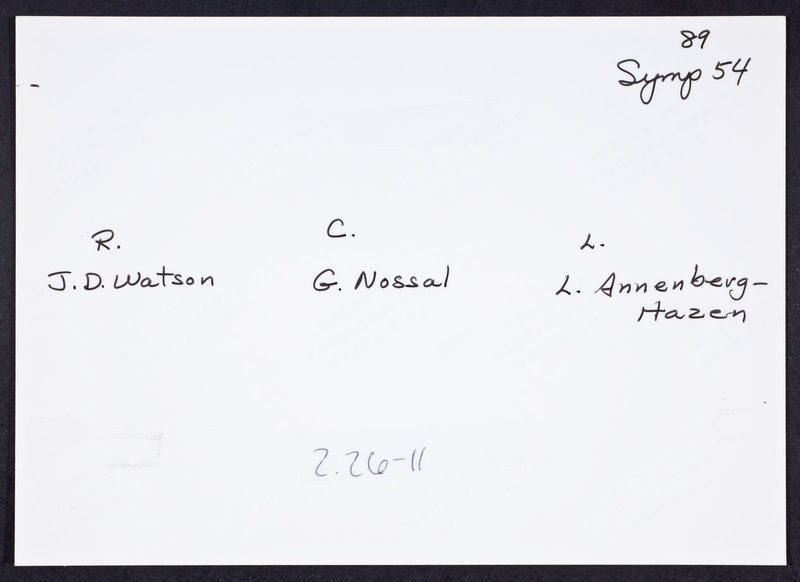 89
Symp 54
R. C. L.
J.D. Watson G. Nossal L. Annenberg-
Hazen
2.26-11